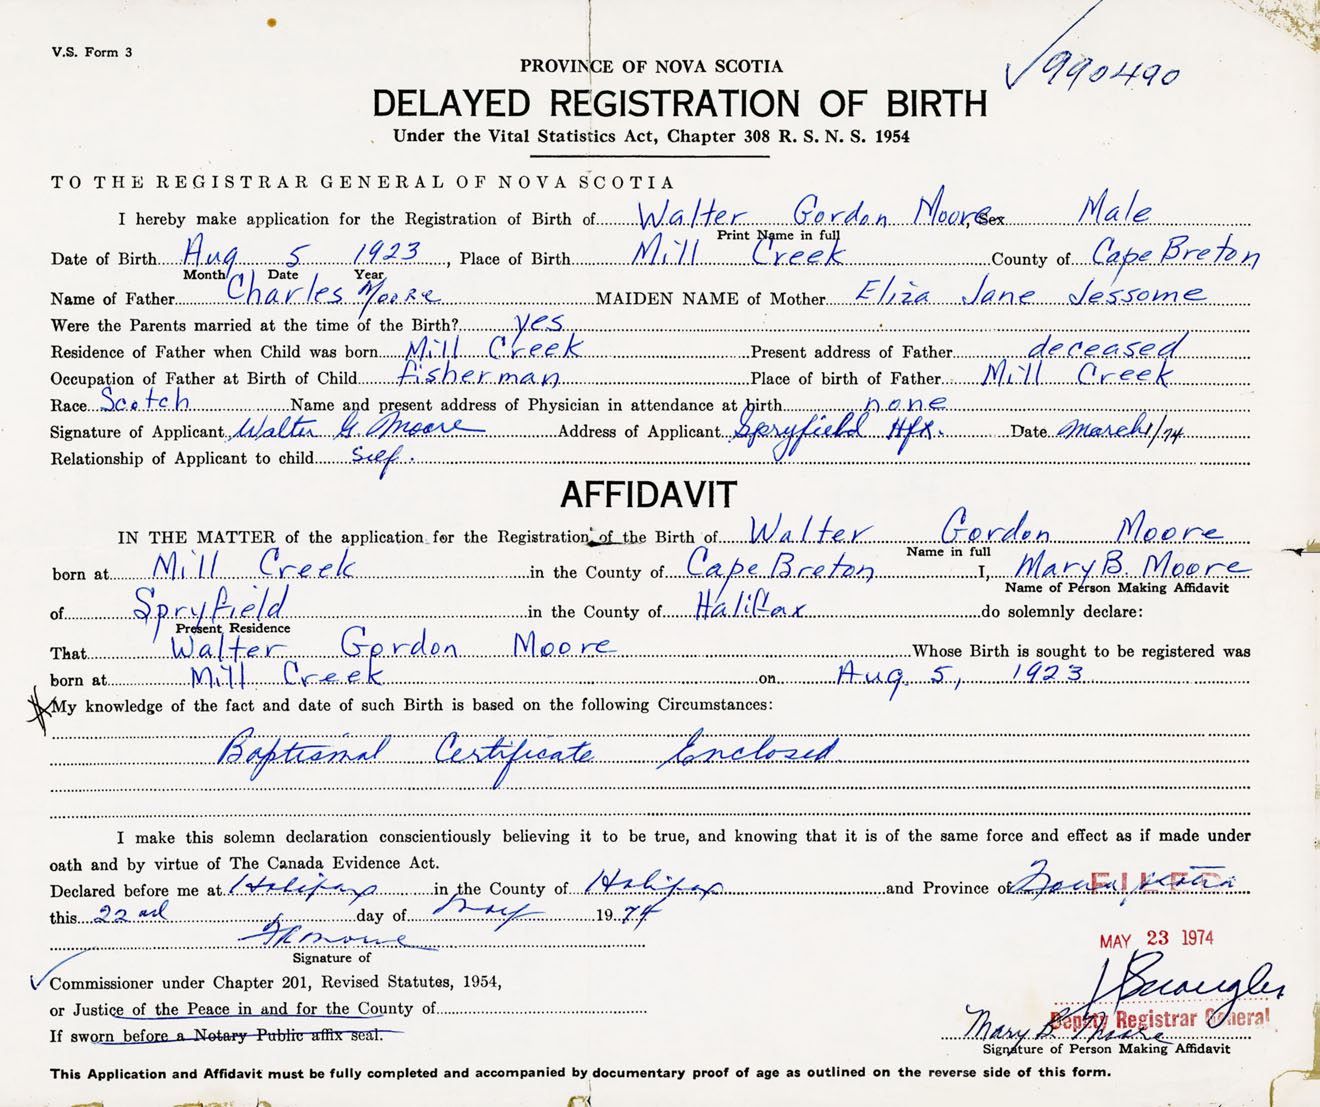 V.S. Form 3
990490
PROVINCE OF NOVA SCOTIA
DELAYED REGISTRATION OF BIRTH
Under the Vital Statistics Act, Chapter 308 R. S. N. S. 1954
TO THE REGISTRAR GENERAL OF NOVA SCOTIA
I hereby make application for the Registration of Birth of Walter Gordon Moore, Sex Male
Print Name in full
Date of Birth Aug 5 1923, Place of Birth Mill Creek County of Cape Breton
Month Date Year
Name of Father Charles Moore MAIDEN NAME of Mother Eliza Jane Jessome
Were the Parents married at the time of the Birth? yes
Residence of Father when Child was born Mill Creek Present address of Father deceased
Occupation of Father at Birth of Child fisherman Place of birth of Father Mill Creek
Race Scotch Name and present address of Physician in attendance at birth none
Signature of Applicant Walter G Moore Address of Applicant Spryfield Hfx. Date March 1/74
Relationship of Applicant to child self.
AFFIDAVIT
IN THE MATTER of the application for the Registration of the Birth of Walter Gordon Moore
Name in full
born at Mill Creek in the County of Cape Breton I, Mary B. Moore
Name of Person Making Affidavit
of Spryfield in the County of Halifax do solemnly declare:
Present Residence
That Walter Gordon Moore Whose Birth is sought to be registered was
born at Mill Creek on Aug 5, 1923
My knowledge of the fact and date of such Birth is based on the following Circumstances:
Baptismal Certificate Enclosed
I make this solemn declaration conscientiously believing it to be true, and knowing that it is of the same force and effect as if made under
oath and by virtue of The Canada Evidence Act.
Declared before me at Halifax in the County of Halifax and Province of Nova Scotia
FILED
this 22nd day of May 1974
MAY 23 1974
Signature of
Commissioner under Chapter 201, Revised Statutes, 1954,
or Justice of the Peace in and for the County of
Deputy Registrar General
If sworn before a Notary Public affix seal.
Mary B Moore
Signature of Person Making Affidavit
This Application and Affidavit must be fully completed and accompanied by documentary proof of age as outlined on the reverse side of this form.